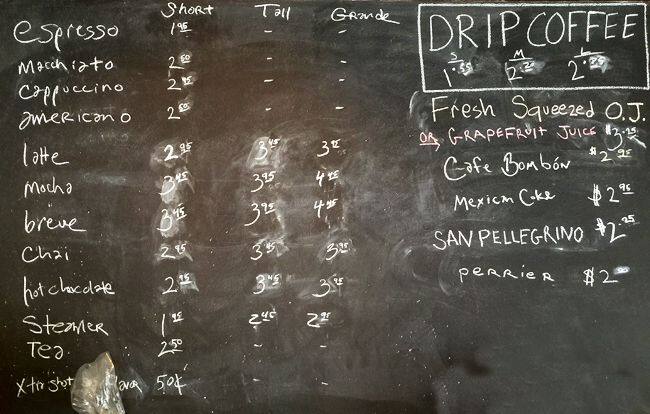 Short Tall Grande
espresso 1.95 - -
Macchiato 2.50 - -
cappuccino 2.95 - -
americano 2.50 - -
latte 2.95 3.45 3.95
Mocha 3.45 3.95 4.45
breve 3.45 3.95 4.45
Chai 2.95 3.45 3.95
hot chocolate 2.95 3.45 3.95
Steamer 1.95 2.45 2.95
Tea 2.50 - -
Xtra shot 50¢ - -
DRIP COFFEE
S M L
2.25
Fresh Squeezed O.J.
OR GRAPEFRUIT JUICE $3.25
Cafe Bombón $2.95
Mexican Coke $2.95
SAN PELLEGRINO $2.25
PERRIER $2